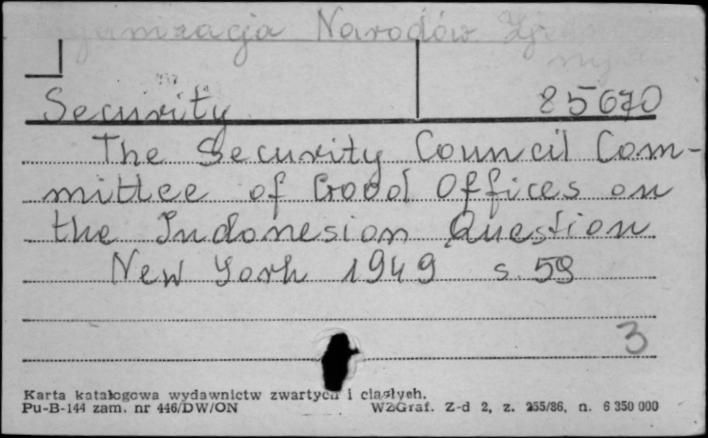 Organizacja Narodów Zjedno
Security 85670
The Security Council Com-
mittee of Good Offices on
the Indonesion Question
New York 1949 s. 59
3
Karta katalogowa wydawnictw zwartych i ciągłych.
Pu-B-144 zam. nr 446/DW/ON WZGraf. Z-d 2, z. 255/86, n. 6 350 000